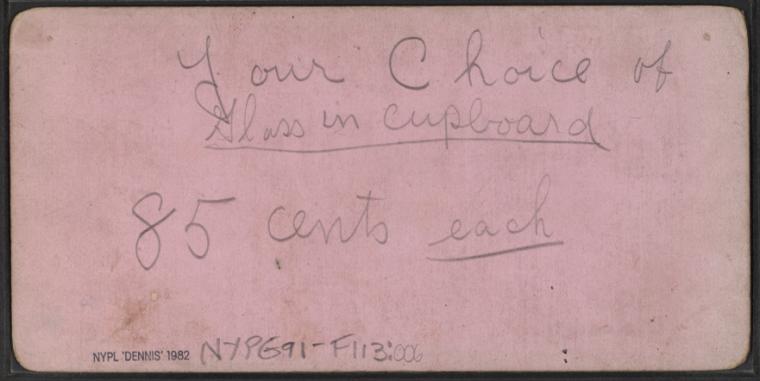 Your Choice of
Glass in cupboard
85 cents each
NYPL 'DENNIS' 1982 NYPG91-F113:006